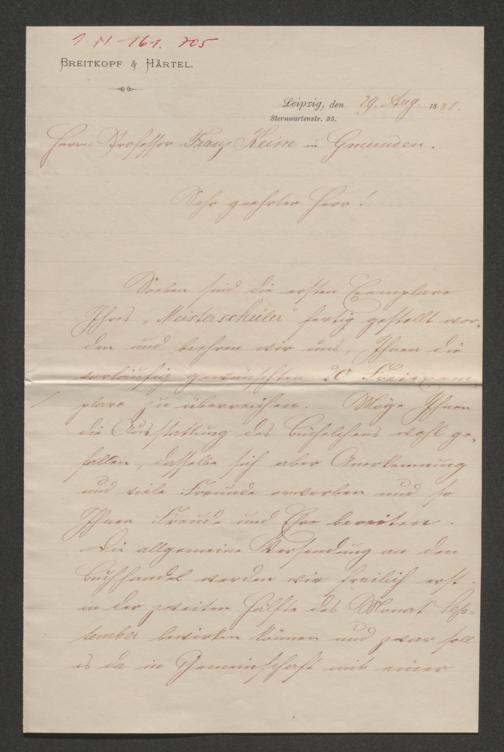 I N 161.705
BREITKOPF & HÄRTEL.
Leipzig, den 29. Aug. 1881.
Sternwartenstr. 35.
Herrn Professor Franz Keim in Gmunden.
Sehr geehrter Herr!
Soeben sind die ersten Exemplare
Ihres „Meisterschüler" fertig gestellt wor-
den und beehren wir uns, Ihnen die
vorläufig gewünschten 20 Freiexem
plare zu überreichen. Möge Ihnen
die Ausstattung des Büchelchens wohl ge-
fallen, dasselbe sich aber Anerkennung
und viele Freunde erwerben und so
Ihnen Freude und Ehre bereiten.
Die allgemeine Versendung an den
Buchhandel werden wir freilich erst
in der zweiten Hälfte des Monat Sep-
tember bewirken können und zwar soll
es da in Gemeinschaft mit einer